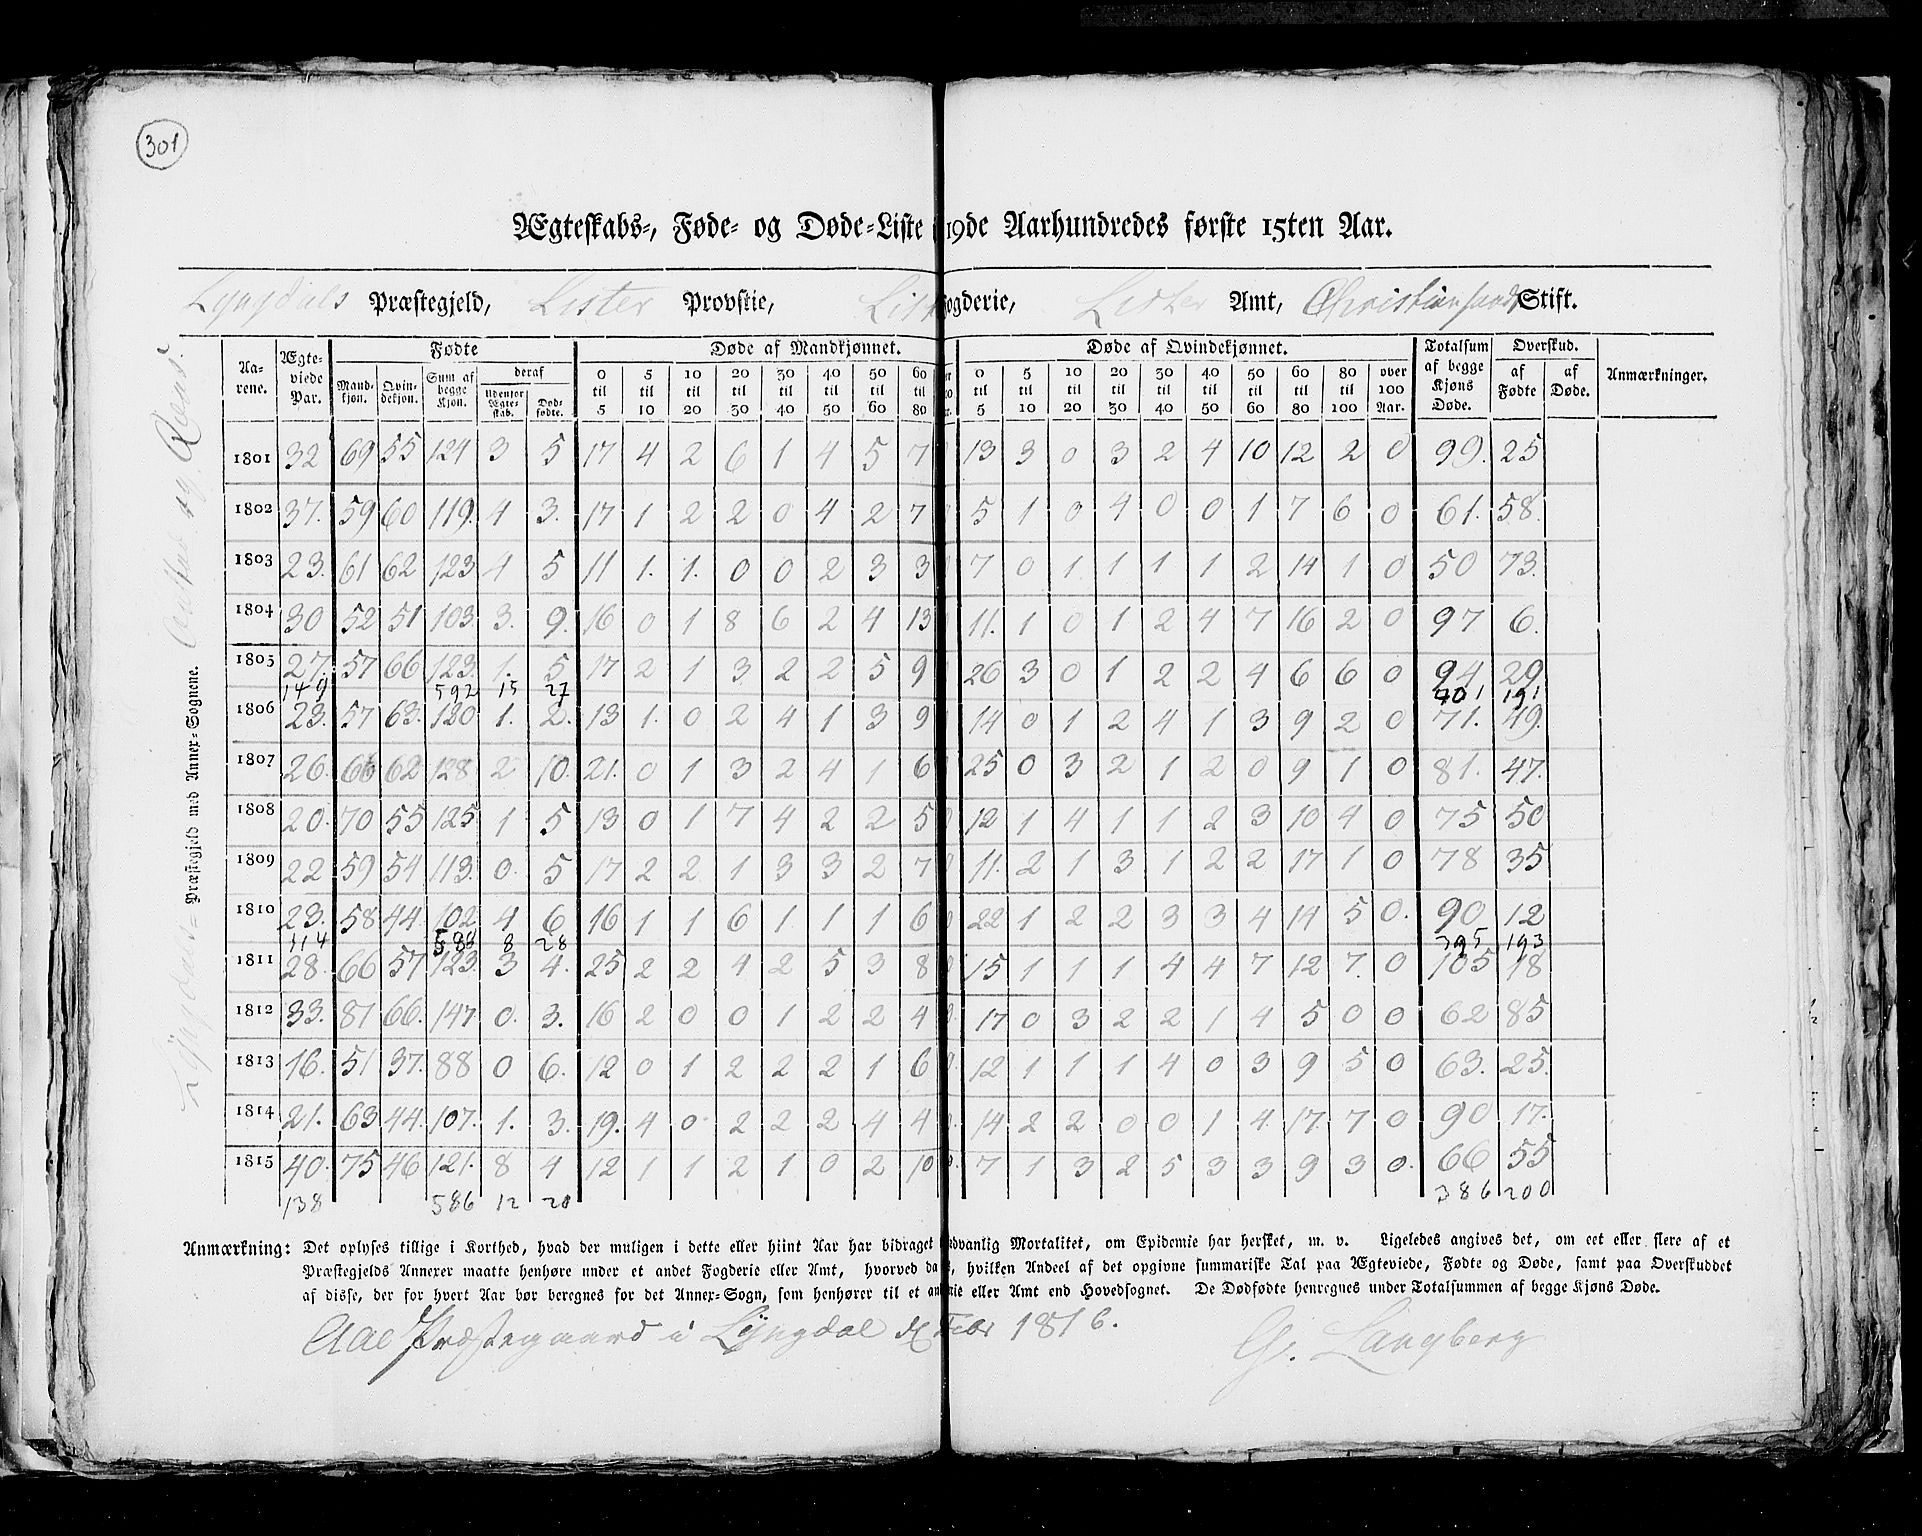 301
Ægteskabs-, Føde- og Døde-Liste 19de Aarhundredes første 15ten Aar.
Lyngdals Præstegjeld, Lister Provstie, List ogderie, Lister Amt, Christiansands Stift.
Lyngdal Præstegjeld med Annex-Sognene. og
Aarene. Ægteviede Par. Fødte Døde af Mandkjønnet. Døde af Qvindekjønnet. Totalsum af begge Kjøns Døde. Overskud. Anmærkninger.
Mandkjøn. Qvindekjøn. Sum af begge Kjøn. deraf Udenfor Ægteskab. Dødfødte. 0 til 5 5 til 10 10 til 20 20 til 30 30 til 40 40 til 50 50 til 60 60 til 80 0 til 5 5 til 10 10 til 20 20 til 30 30 til 40 40 til 50 50 til 60 60 til 80 80 til 100 over 100 Aar. af Fødte af Døde.
1801 32 69 55 124 3 5 17 4 2 6 1 4 5 7 13 3 0 3 2 4 10 12 2 0 99. 25
1802 37. 59 60 119. 4 3. 17 1 2 2 0 4 2 7 5 1 0 4 0 0 1 7 6 0 61. 58.
1803 23. 61 62 123 4 5 11 1. 1. 0 0 2 3 3 7 0 1 1 1 1 2 14 1 0 50 73.
1804 30 52 51 103. 3. 9. 16 0 1 8 6 2 4 13 11. 1 0 1 2 4 7 16 2 0 97 6.
1805 27. 57 66 123. 1. 5 17 2 1 3 2 2 5 9 26 3 0 1 2 2 4 6 6 0 94 29
149 592 15 27 401 191
1806 23. 57 63. 120 1. 2. 13 1. 0 2 4 1 3 9 14 0 1 2 4 1 3 9 2 0 71. 49.
1807 26. 66 62 128 2 10. 21. 0 1 3 2 4 1 6 25 0 3 2 1 2 0 9 1 0 81. 47.
1808 20. 70 55 125 1 5 13 0 1 7 4 2 2 5 12 1 4 1 1 2 3 10 4 0 75 50
1809 22 59 54 113. 0. 5 17 2 2 1 3 3 2 7 11. 2 1 3 1 2 2 17 1 0 78 35
1810 23. 58 44 102 4 6 16 1 1 6 1 1 1 6 22 1 2 2 3 3 4 14 5 0. 90 12
114 588 8 28 395 193
1811 28. 66 57 123. 3 4. 25 2 2 4 2 5 3 8 15 1 1 1 4 4 7 12 7. 0 105 18
1812 33. 81 66. 147 0. 3. 16 2 0 0 1 2 2 4 17 0 3 2 2 1 4 5 0 0 62 85
1813 16. 51 37. 88 0 6. 12 0 1 2 2 2 1 6 12 1 1 1 4 0 3 9 5 0 63. 25.
1814 21. 63 44. 107. 1. 3. 19. 4 0 2 2 2 4 4 14 2 2 0 0 1 4 17. 7 0 90 17.
1815 40. 75 46 121. 8 4 12 1 1 2 1 0 2 10 7 1 3 2 5 3 3 9 3 0. 66 55
138 586 12 20 386 200
Anmærkning: Det oplyses tillige i Korthed, hvad der muligen i dette eller hiint Aar har bidraget dvanlig Mortalitet, om Epidemie har hersket, m. v. Ligeledes angives det, om eet eller flere af et
Præstegjelds Annexer maatte henhøre under et andet Fogderie eller Amt, hvorved da , hvilken Andeel af det opgivne summariske Tal paa Ægteviede, Fødte og Døde, samt paa Overskuddet
af disse, der for hvert Aar bør beregnes for det Annex-Sogn, som henhører til et an rie eller Amt end Hovedsognet. De Dødfødte henregnes under Totalsummen af begge Kjøns Døde.
Aae Præstegaard i Lyngdal Febr 1816.
G. Langberg